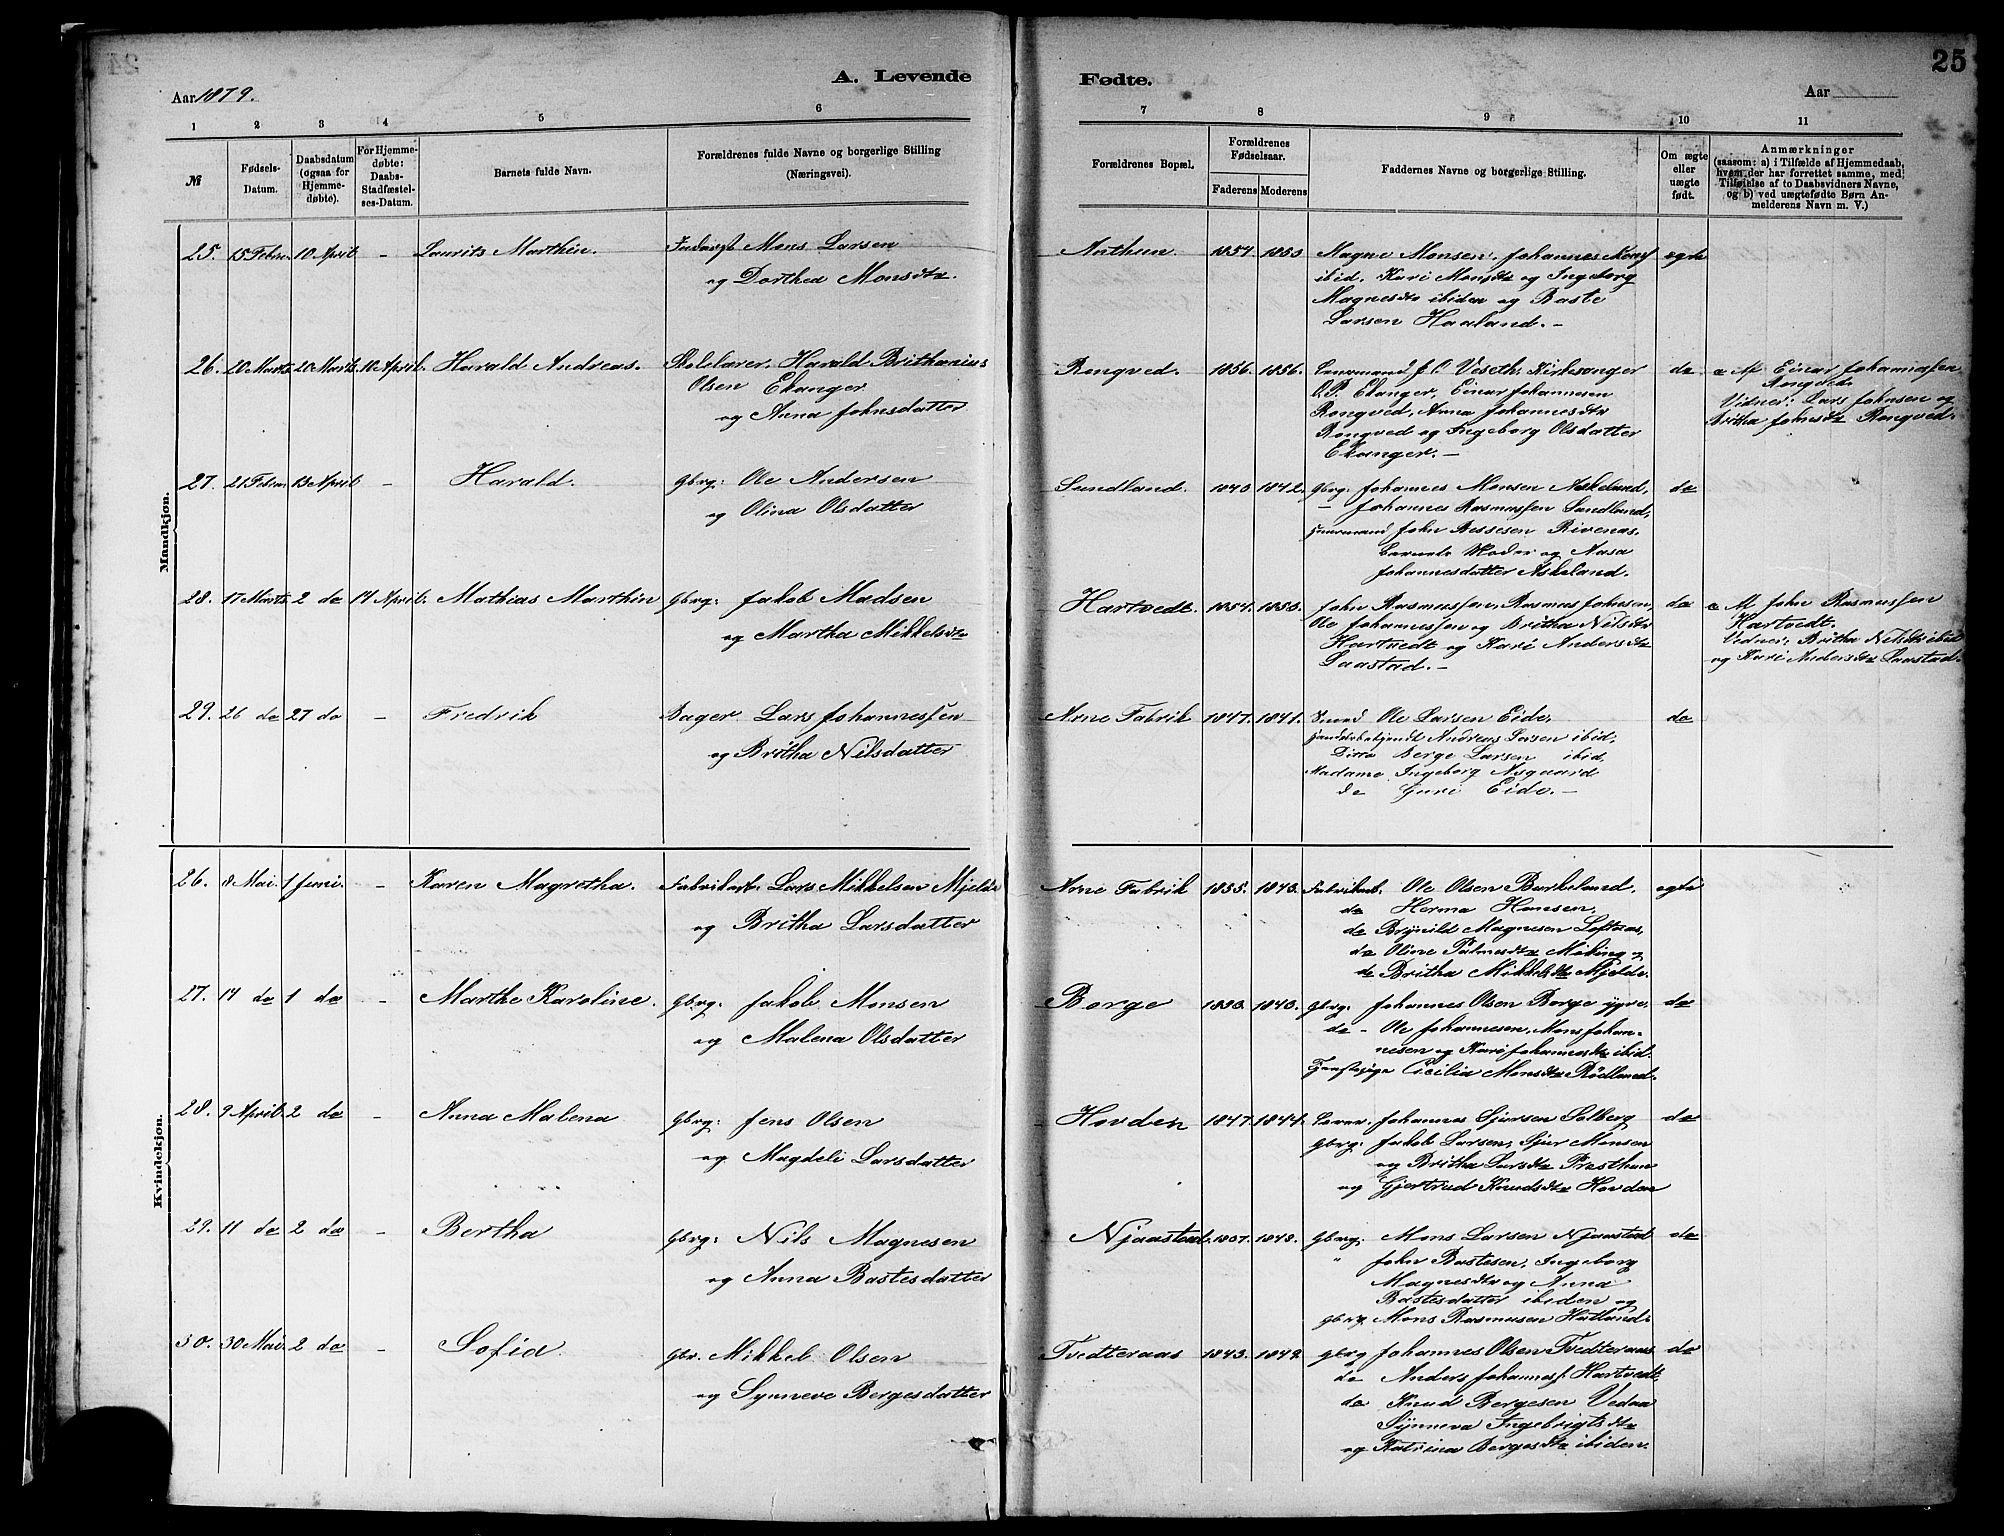 25
A. Levende
Fødte.
Aar 1879.
Aar
1 2 3 4 5 6 7 8 9 10 11
№
Fødsels-
Datum.
Daabsdatum
(ogsaa for
Hjemme-
døbte).
For Hjemme-
døbte:
Daabs-
Stadfæstel-
ses-Datum.
Barnets fulde Navn.
Forældrenes fulde Navne og borgerlige Stilling
(Næringsvei).
Forældrenes Bopæl.
Forældrenes
Fødselsaar.
Faderens Moderens
Faddernes Navne og borgerlige Stilling.
Om ægte
eller
uægte
født.
Anmærkninger
(saasom: a) i Tilfælde af Hjemmedaab,
hvem der har forrettet samme, med
Tilføielse af to Daabsvidners Navne,
og b) ved uægtefødte Børn An-
melderens Navn m. V.)
Mandkjøn.
25. 15 Febru. 10 April - Laurits Marthin.
Mons Larsen
og Dorthea Monsdtr.
1854. 1853
Magne Monsen, Johannes
ibid. Kari Monsdtr og Ingeborg
Magnesdtr ibiden og Baste
Larsen Haaland. -
ægte
26. 20 Marts 20 Marts 10 April. Harald Andreas.
Skolelærer. Harald Brithanius
Olsen Ekanger
og Anna Johnsdatter
Rongved. 1856. 1856.
J. O. Veseth. Kirkesanger
O. P. Ekanger, Einar Johannesen
Rongved, Anna Johannesdtr
Rongved og Ingeborg Olsdatter
Ekanger. -
do
a Af Einar Johannessen
Rongved.
Vidner: Lars Johnsen og
Britha Johnsdtr Rongved.
27. 21 Febru. 13 April - Harald.
Gbrg: Ole Andersen
og Olina Olsdatter
Sundland. 1840 1842.
Gbrg: Johannes Monsen Askeland,
- Johannes Rasmussen Sundland,
John Bessesen Rivenæs.
Barnets Moder og Aasa
Johannesdatter Askeland.
do
28. 17 Marts 2 do 14 April. Mathias Marthin
Gbrg: Jakob Madsen
og Martha Mikkelsdtr
Hartvedt. 1854. 1853.
John Rasmussen, Rasmus Johnsen,
Ole Johannessen og Britha Nilsdtr
Hartvedt og Kari Andersdtr
Laastad. -
do
a Af John Rasmussen
Hartvedt.
Vidner: Britha Nilsdtr ibid
og Kari Andersdtr Laastad.
29. 26 do 27 do - Fredrik
Bager Lars Johannessen
og Britha Nilsdatter
Arne Fabrik 1847. 1841.
Smed Ole Larsen Eide,
Handelsbetjendt Andreas Larsen ibid,
Ditto Berge Larsen ibid,
Madame Ingeborg Nygaard
do Guri Eide. -
do
Kvindekjøn.
26. 8 Mai. 1 Juni. - Karen Magretha.
Fabrikarb. Lars Mikkelsen Mjelde
og Britha Larsdatter
Arne Fabrik 1835. 1843.
Fabrikarb. Ole Olsen Birkeland,
do Herma Hansen,
do Brynild Magnesen Loftaas,
do Oline Palmesdtr Miking og
do Britha Mikkelsdtr Mjelde.
ægte
27. 14 do 1 do - Marthe Karoline.
Gbrg: Jakob Monsen
og Malena Olsdatter
Borge 1833. 1843.
Gbrg: Johannes Olsen Borge
do - Ole Johannesen, Mons Johan-
nesen og Kari Johannesdtr ibid.
Cicilia Monsdtr Rödland.
do
28. 9 April. 2 do - Anna Malena
Gbrg: Jens Olsen
og Magdeli Larsdatter
Hovden 1847. 1844.
Johannes Sjursen Solberg
Gbrg: Jakob Larsen, Sjur Monsen
og Britha Larsdtr Præsthun
og Gjertrud Knudsdtr Hovden
do
29. 11 do 2 do - Bertha
Gbrg: Nils Magnesen
og Anna Bastesdatter
Njaastad. 1837. 1848.
Gbrg: Mons Larsen Njaastad
" John Bastesen, Ingeborg
Magnesdtr og Anna
Bastesdatter ibiden og
Gbrg. Mons Rasmusen Hatland.
do
30. 30 Mai. 2 do - Sofia.
Gbr. Mikkel Olsen
og Synneve Bergesdatter
Tvedteraas 1843. 1849.
Gbrg Johannes Olsen Tvedteraas
do Anders Johanness. Hartvedt
do Knud Bergesen Vedaa
Synneva Ingebrigtsdtr
og Katrina Bergesdtr ibiden.
do